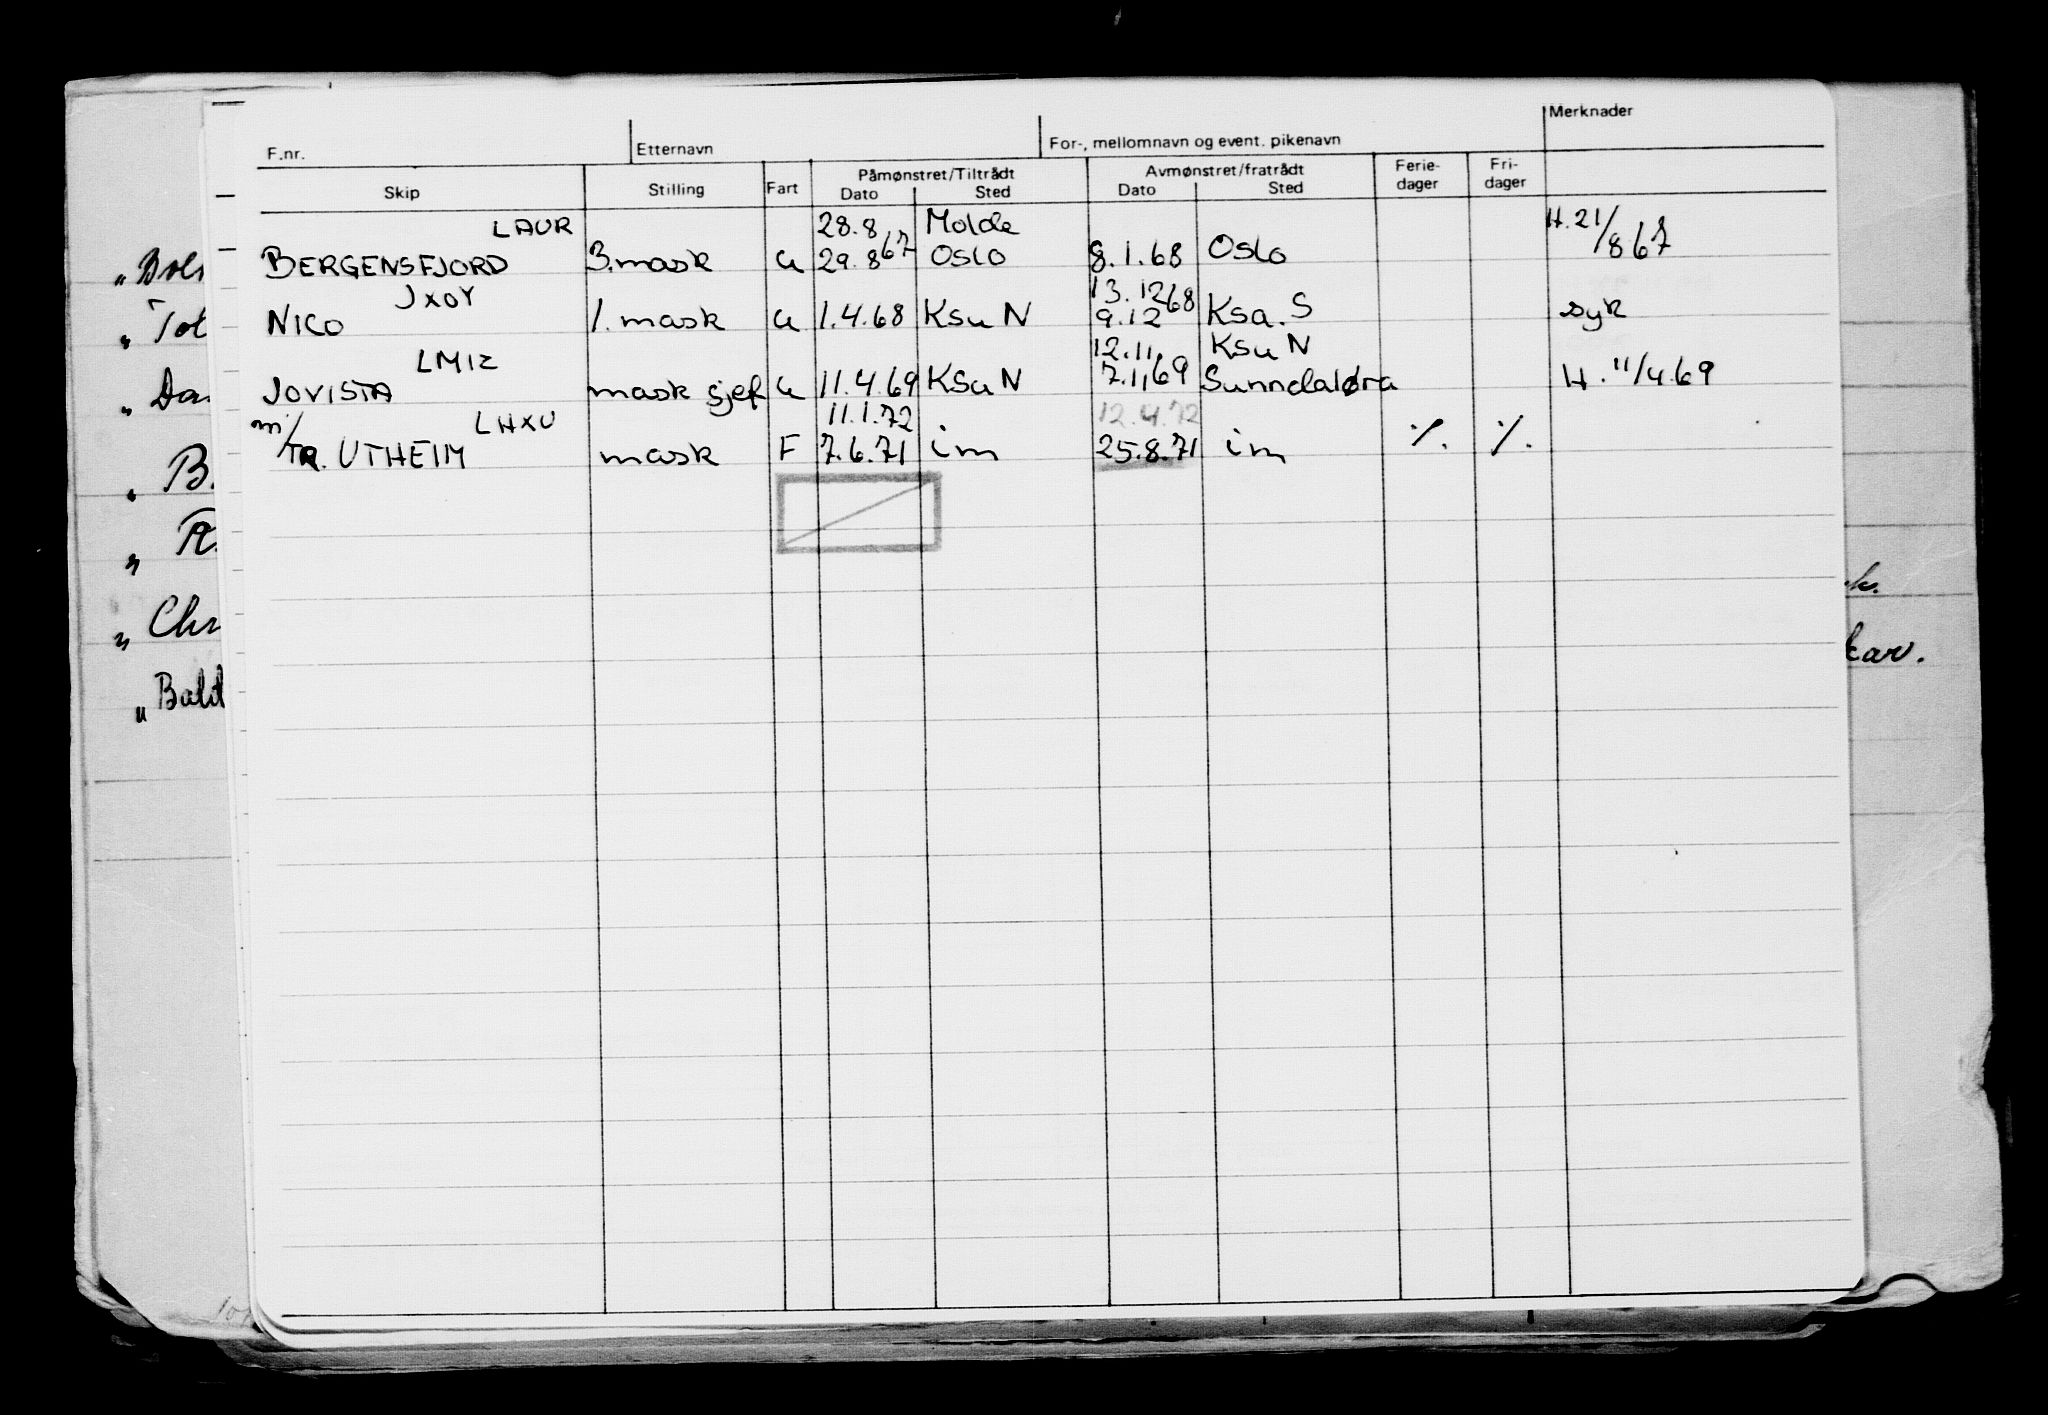 Merknader
F.nr. Etternavn For-, mellomnavn og event. pikenavn
Skip Stilling Fart Påmønstret/Tiltrådt Avmønstret/fratrådt Ferie- Fri-
Dato Sted Dato Sted dager dager
LAUR 28.8 Molde H. 21/
BERGENSFJORD 3.mask u 29.8 67 OSLO 8.1.68 Oslo 8 67
JXOY 13.12
NICO 1. mask u 1.4.68 Ksu N 9.12 68 Ksa. S syk
LMIZ 12.11. KSu N
JOVISTA mask sjef u 11.4.69 KSu N 7.11 69 Sunndaløra H. 11/4.69
m/ LHXU 11.1.72 12.4.72
TR. UTHEIM mask F 7.6.71 im 25.8.71 im ٪. ٪.
„ Tot
„ B.
„ Chr
„ Bald